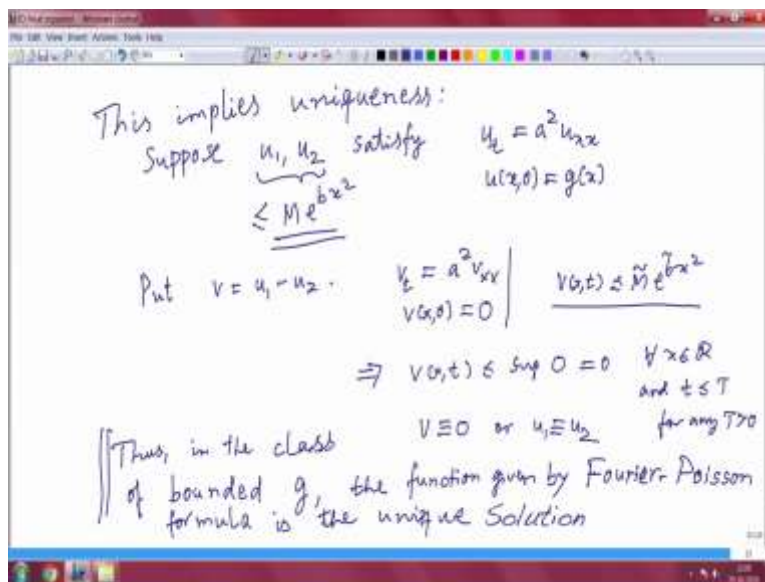 This implies uniqueness:
Suppose u₁, u₂ satisfy u_t = a² u_xx
u(x,0) = g(x)
≤ M e^{bx²}
Put v = u₁ - u₂. v_t = a² v_xx | v(x,t) ≤ M̃ e^{b̃x²}
v(x,0) = 0
⇒ v(x,t) ≤ sup 0 = 0 ∀ x ∈ ℝ
and t ≤ T
for any T>0
V ≡ 0 or u₁ ≡ u₂
Thus, in the class
of bounded g, the function given by Fourier-Poisson
formula is the unique Solution